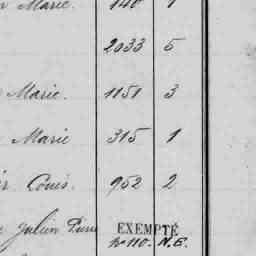 Marie. 140 1
2033 5
Marie. 1151 3
Marie 315 1
Couis. 952 2
Julien Pierre EXEMPTÉ
No 110. N.E.